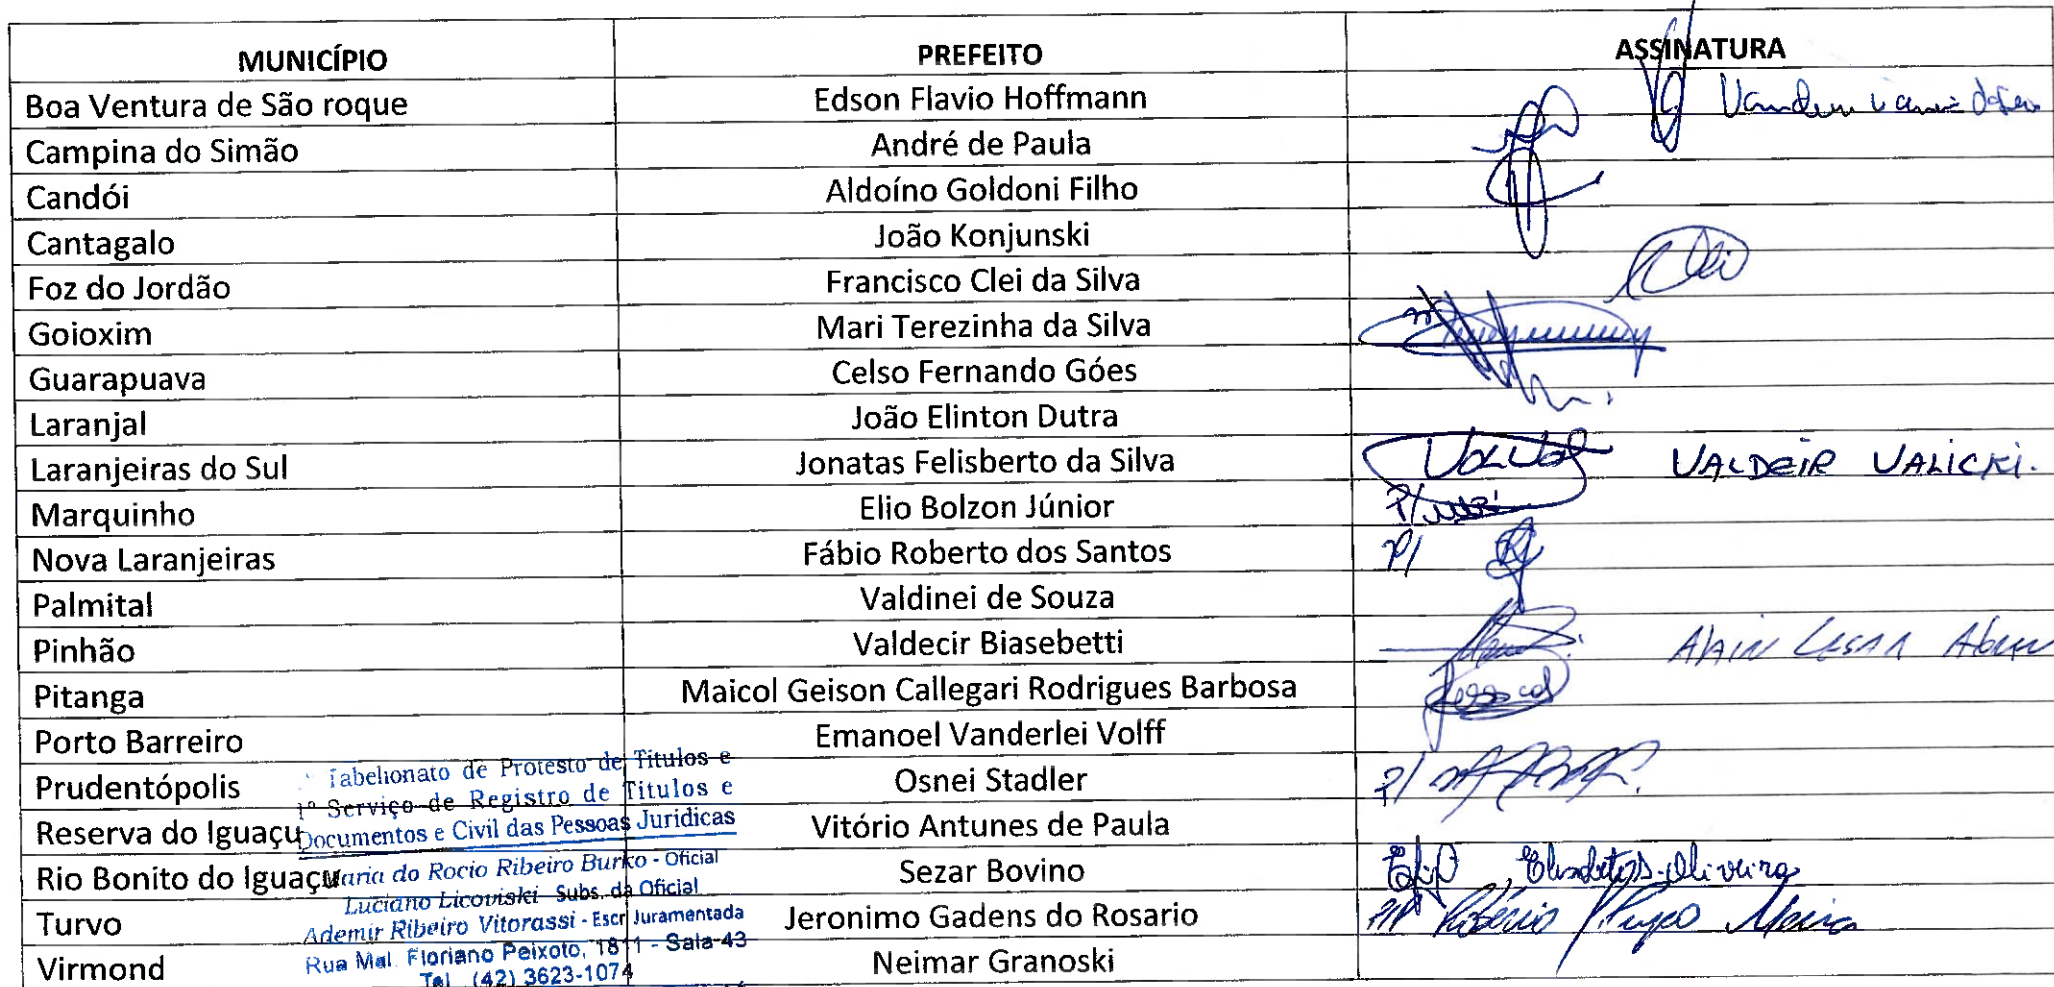 MUNICÍPIO PREFEITO ASSINATURA
Boa Ventura de São roque Edson Flavio Hoffmann
Campina do Simão André de Paula
Candói Aldoíno Goldoni Filho
Cantagalo João Konjunski
Foz do Jordão Francisco Clei da Silva
Goioxim Mari Terezinha da Silva
Guarapuava Celso Fernando Góes
Laranjal João Elinton Dutra
Laranjeiras do Sul Jonatas Felisberto da Silva VALDEIR VALICKI.
Marquinho Elio Bolzon Júnior P/
Nova Laranjeiras Fábio Roberto dos Santos P/
Palmital Valdinei de Souza
Pinhão Valdecir Biasebetti
Pitanga Maicol Geison Callegari Rodrigues Barbosa
Porto Barreiro Emanoel Vanderlei Volff
Prudentópolis Osnei Stadler P/
Reserva do Iguaçu Vitório Antunes de Paula
Rio Bonito do Iguaçu Sezar Bovino
Turvo Jeronimo Gadens do Rosario
Virmond Neimar Granoski
Tabelionato de Protesto de Titulos e
1º Serviço de Registro de Titulos e
Documentos e Civil das Pessoas Juridicas
Maria do Rocio Ribeiro Burko - Oficial
Luciano Licoviski Subs. da Oficial
Ademir Ribeiro Vitorassi - Escr Juramentada
Rua Mal. Floriano Peixoto, 1811 - Sala 43
Tel. (42) 3623-1074